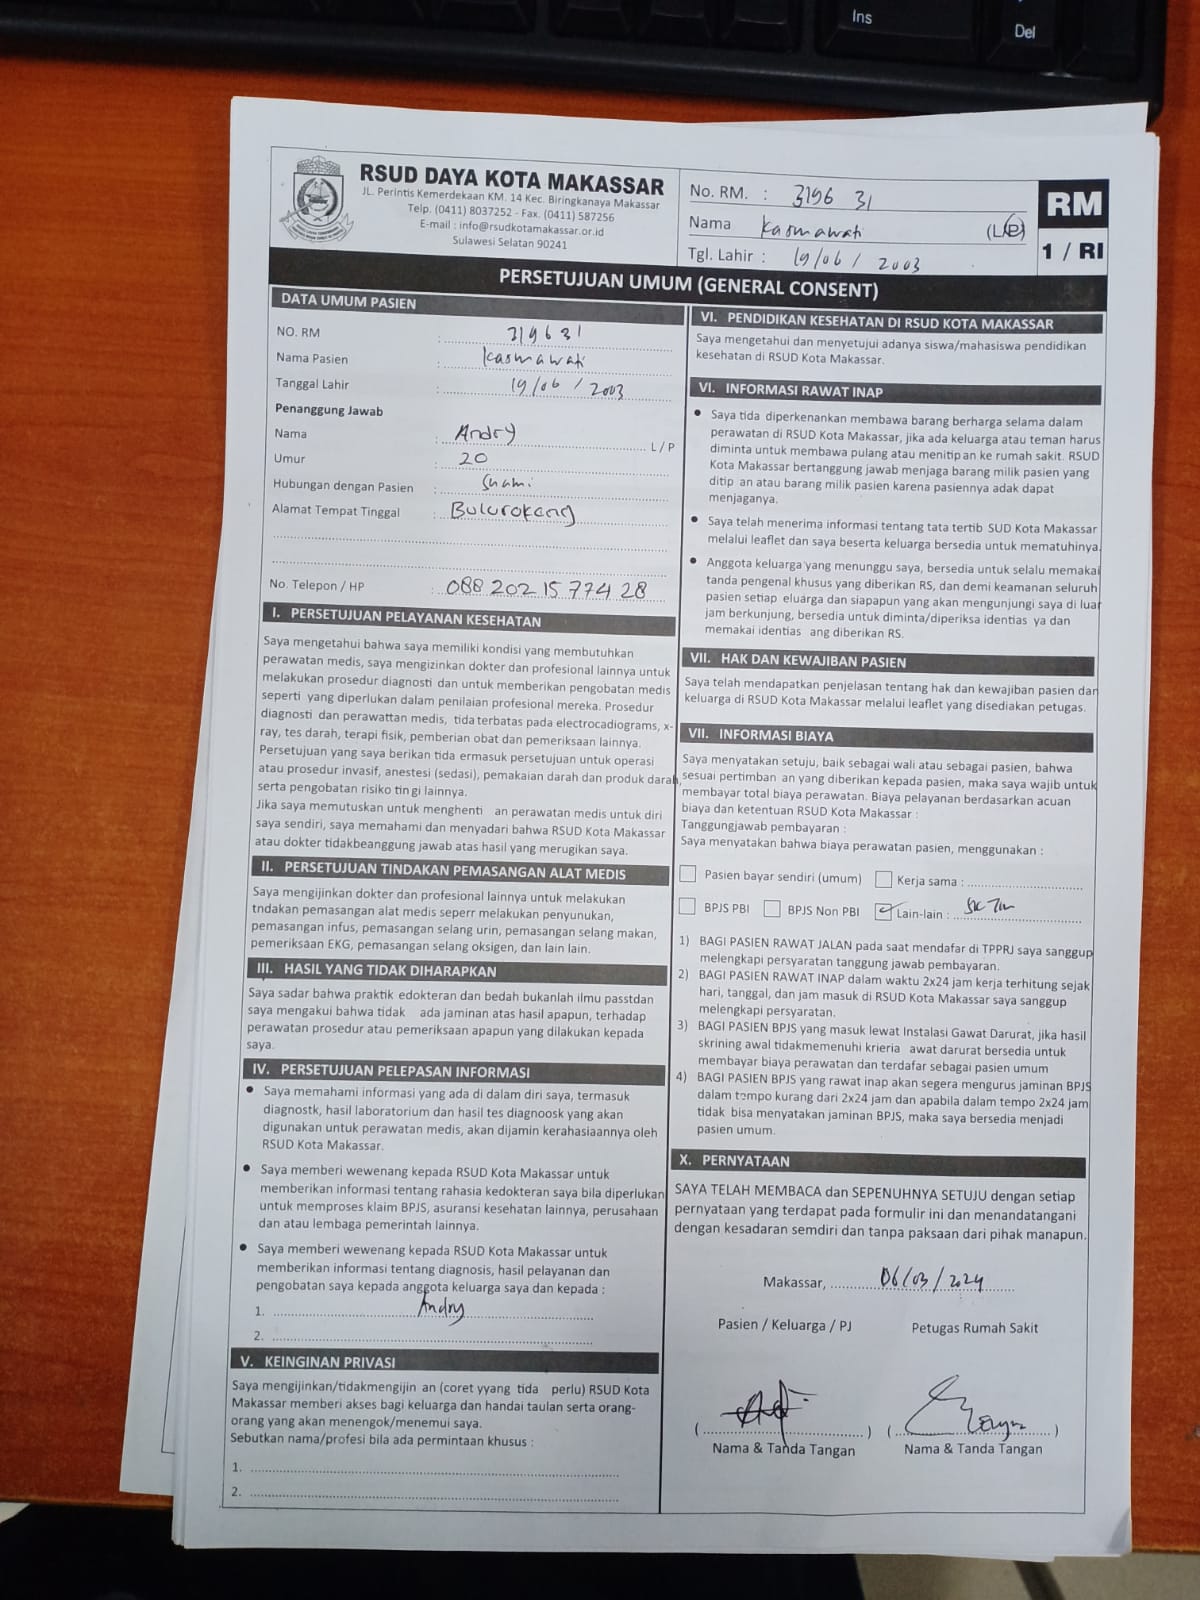 Ins
Del
RSUD DAYA KOTA MAKASSAR
JL. Perintis Kemerdekaan KM. 14 Kec. Biringkanaya Makassar
Telp. (0411) 8037252 - Fax. (0411) 587256
E-mail : info@rsudkotamakassar.or.id
Sulawesi Selatan 90241
No. RM. : 3196 31
Nama Kasmawati (L/P)
Tgl. Lahir : 19/06/2003
RM
1 / RI
PERSETUJUAN UMUM (GENERAL CONSENT)
DATA UMUM PASIEN
NO. RM : 319631
Nama Pasien : Kasmawati
Tanggal Lahir : 19/06/2003
Penanggung Jawab
Nama : Andry L / P
Umur : 20
Hubungan dengan Pasien : Suami
Alamat Tempat Tinggal : Bulurokeng
No. Telepon / HP : 088 202 15 774 28
I. PERSETUJUAN PELAYANAN KESEHATAN
Saya mengetahui bahwa saya memiliki kondisi yang membutuhkan
perawatan medis, saya mengizinkan dokter dan profesional lainnya untuk
melakukan prosedur diagnosti dan untuk memberikan pengobatan medis
seperti yang diperlukan dalam penilaian profesional mereka. Prosedur
diagnosti dan perawattan medis, tida terbatas pada electrocadiograms, x-
ray, tes darah, terapi fisik, pemberian obat dan pemeriksaan lainnya.
Persetujuan yang saya berikan tida ermasuk persetujuan untuk operasi
atau prosedur invasif, anestesi (sedasi), pemakaian darah dan produk darah,
serta pengobatan risiko tin gi lainnya.
Jika saya memutuskan untuk menghenti an perawatan medis untuk diri
saya sendiri, saya memahami dan menyadari bahwa RSUD Kota Makassar
atau dokter tidakbeanggung jawab atas hasil yang merugikan saya.
II. PERSETUJUAN TINDAKAN PEMASANGAN ALAT MEDIS
Saya mengijinkan dokter dan profesional lainnya untuk melakukan
tndakan pemasangan alat medis seperr melakukan penyunukan,
pemasangan infus, pemasangan selang urin, pemasangan selang makan,
pemeriksaan EKG, pemasangan selang oksigen, dan lain lain.
III. HASIL YANG TIDAK DIHARAPKAN
Saya sadar bahwa praktik edokteran dan bedah bukanlah ilmu passtdan
saya mengakui bahwa tidak ada jaminan atas hasil apapun, terhadap
perawatan prosedur atau pemeriksaan apapun yang dilakukan kepada
saya.
IV. PERSETUJUAN PELEPASAN INFORMASI
• Saya memahami informasi yang ada di dalam diri saya, termasuk
diagnostk, hasil laboratorium dan hasil tes diagnoosk yang akan
digunakan untuk perawatan medis, akan dijamin kerahasiaannya oleh
RSUD Kota Makassar.
• Saya memberi wewenang kepada RSUD Kota Makassar untuk
memberikan informasi tentang rahasia kedokteran saya bila diperlukan
untuk memproses klaim BPJS, asuransi kesehatan lainnya, perusahaan
dan atau lembaga pemerintah lainnya.
• Saya memberi wewenang kepada RSUD Kota Makassar untuk
memberikan informasi tentang diagnosis, hasil pelayanan dan
pengobatan saya kepada anggota keluarga saya dan kepada :
1. Andry
2.
V. KEINGINAN PRIVASI
Saya mengijinkan/tidakmengijin an (coret yyang tida perlu) RSUD Kota
Makassar memberi akses bagi keluarga dan handai taulan serta orang-
orang yang akan menengok/menemui saya.
Sebutkan nama/profesi bila ada permintaan khusus :
1.
2.
VI. PENDIDIKAN KESEHATAN DI RSUD KOTA MAKASSAR
Saya mengetahui dan menyetujui adanya siswa/mahasiswa pendidikan
kesehatan di RSUD Kota Makassar.
VI. INFORMASI RAWAT INAP
• Saya tida diperkenankan membawa barang berharga selama dalam
perawatan di RSUD Kota Makassar, jika ada keluarga atau teman harus
diminta untuk membawa pulang atau menitip an ke rumah sakit. RSUD
Kota Makassar bertanggung jawab menjaga barang milik pasien yang
ditip an atau barang milik pasien karena pasiennya adak dapat
menjaganya.
• Saya telah menerima informasi tentang tata tertib SUD Kota Makassar
melalui leaflet dan saya beserta keluarga bersedia untuk mematuhinya.
• Anggota keluarga yang menunggu saya, bersedia untuk selalu memakai
tanda pengenal khusus yang diberikan RS, dan demi keamanan seluruh
pasien setiap eluarga dan siapapun yang akan mengunjungi saya di luar
jam berkunjung, bersedia untuk diminta/diperiksa identias ya dan
memakai identias ang diberikan RS.
VII. HAK DAN KEWAJIBAN PASIEN
Saya telah mendapatkan penjelasan tentang hak dan kewajiban pasien dan
keluarga di RSUD Kota Makassar melalui leaflet yang disediakan petugas.
VII. INFORMASI BIAYA
Saya menyatakan setuju, baik sebagai wali atau sebagai pasien, bahwa
sesuai pertimban an yang diberikan kepada pasien, maka saya wajib untuk
membayar total biaya perawatan. Biaya pelayanan berdasarkan acuan
biaya dan ketentuan RSUD Kota Makassar :
Tanggungjawab pembayaran :
Saya menyatakan bahwa biaya perawatan pasien, menggunakan :
Pasien bayar sendiri (umum) Kerja sama :
BPJS PBI BPJS Non PBI Lain-lain :
1) BAGI PASIEN RAWAT JALAN pada saat mendafar di TPPRJ saya sanggup
melengkapi persyaratan tanggung jawab pembayaran.
2) BAGI PASIEN RAWAT INAP dalam waktu 2x24 jam kerja terhitung sejak
hari, tanggal, dan jam masuk di RSUD Kota Makassar saya sanggup
melengkapi persyaratan.
3) BAGI PASIEN BPJS yang masuk lewat Instalasi Gawat Darurat, jika hasil
skrining awal tidakmemenuhi krieria awat darurat bersedia untuk
membayar biaya perawatan dan terdafar sebagai pasien umum
4) BAGI PASIEN BPJS yang rawat inap akan segera mengurus jaminan BPJS
dalam tempo kurang dari 2x24 jam dan apabila dalam tempo 2x24 jam
tidak bisa menyatakan jaminan BPJS, maka saya bersedia menjadi
pasien umum.
X. PERNYATAAN
SAYA TELAH MEMBACA dan SEPENUHNYA SETUJU dengan setiap
pernyataan yang terdapat pada formulir ini dan menandatangani
dengan kesadaran semdiri dan tanpa paksaan dari pihak manapun.
Makassar, 06/03/2024
Pasien / Keluarga / PJ Petugas Rumah Sakit
Nama & Tanda Tangan Nama & Tanda Tangan